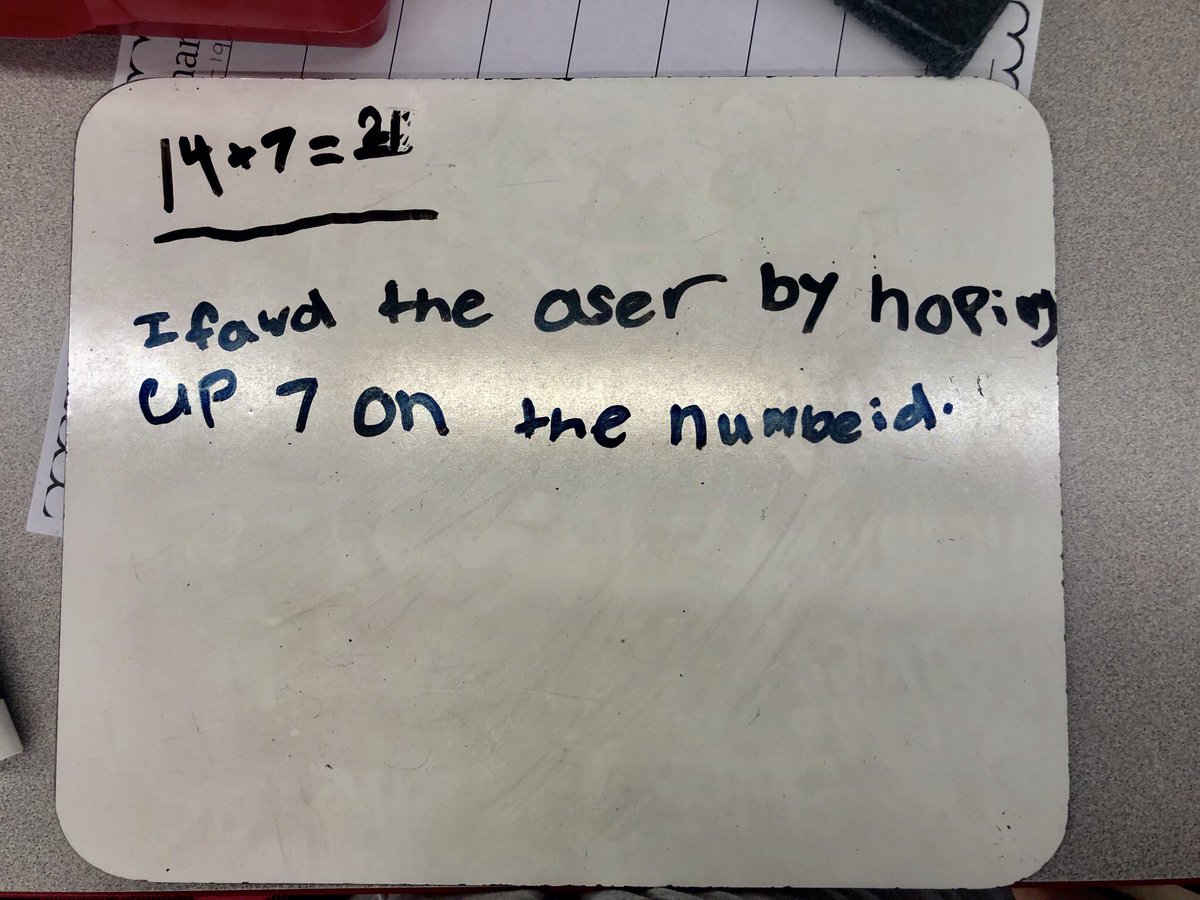 nar
-19
14+7=21
I fawd the aser by hoping
up 7 on the numbeid.